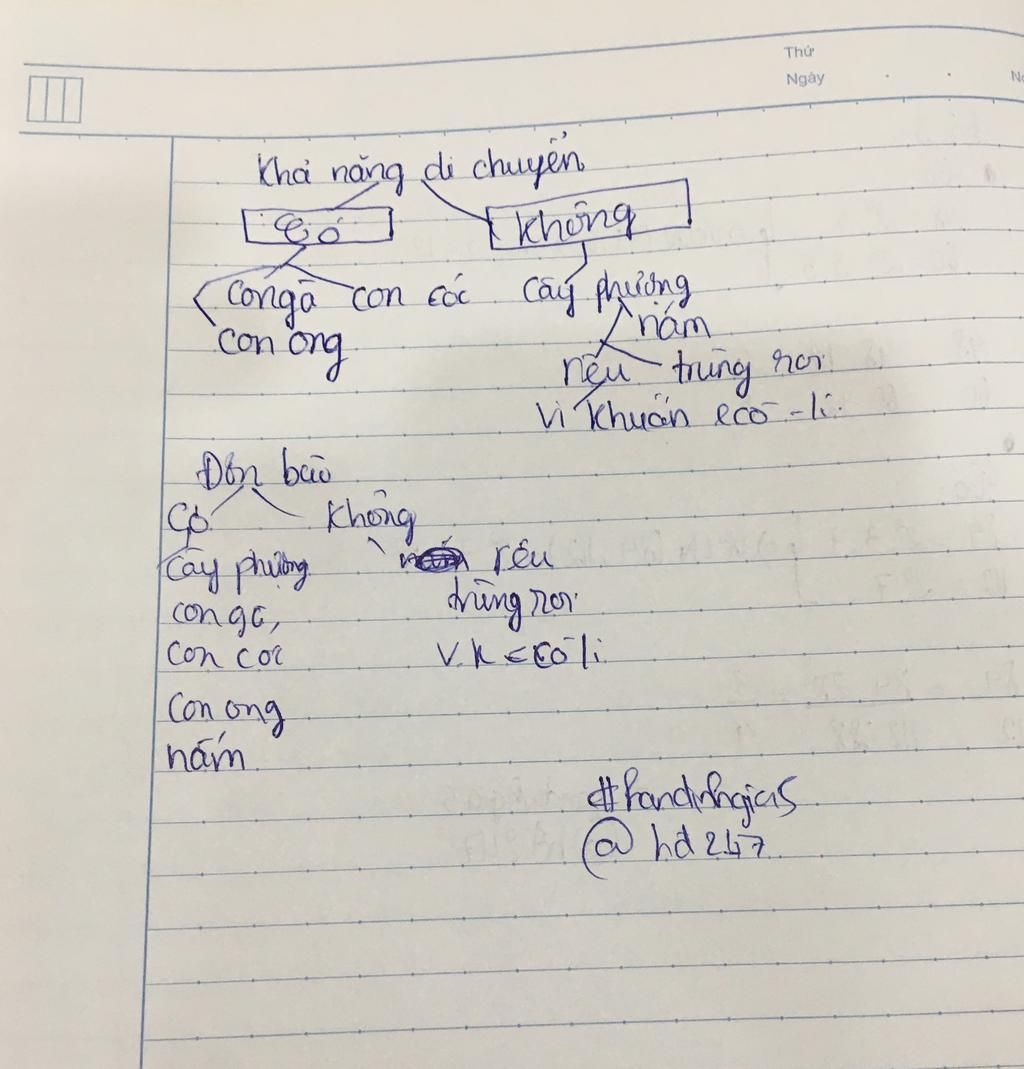 Thứ
Ngày
Khả năng di chuyển
Có không
con gà con cóc cây phượng
con ong nấm
rêu trùng roi
vi khuẩn ecô-li
Đơn bào
Có không
cây phượng rêu
con gà, trùng roi
con cóc V.K ecôli
con ong
nấm
@ hd247